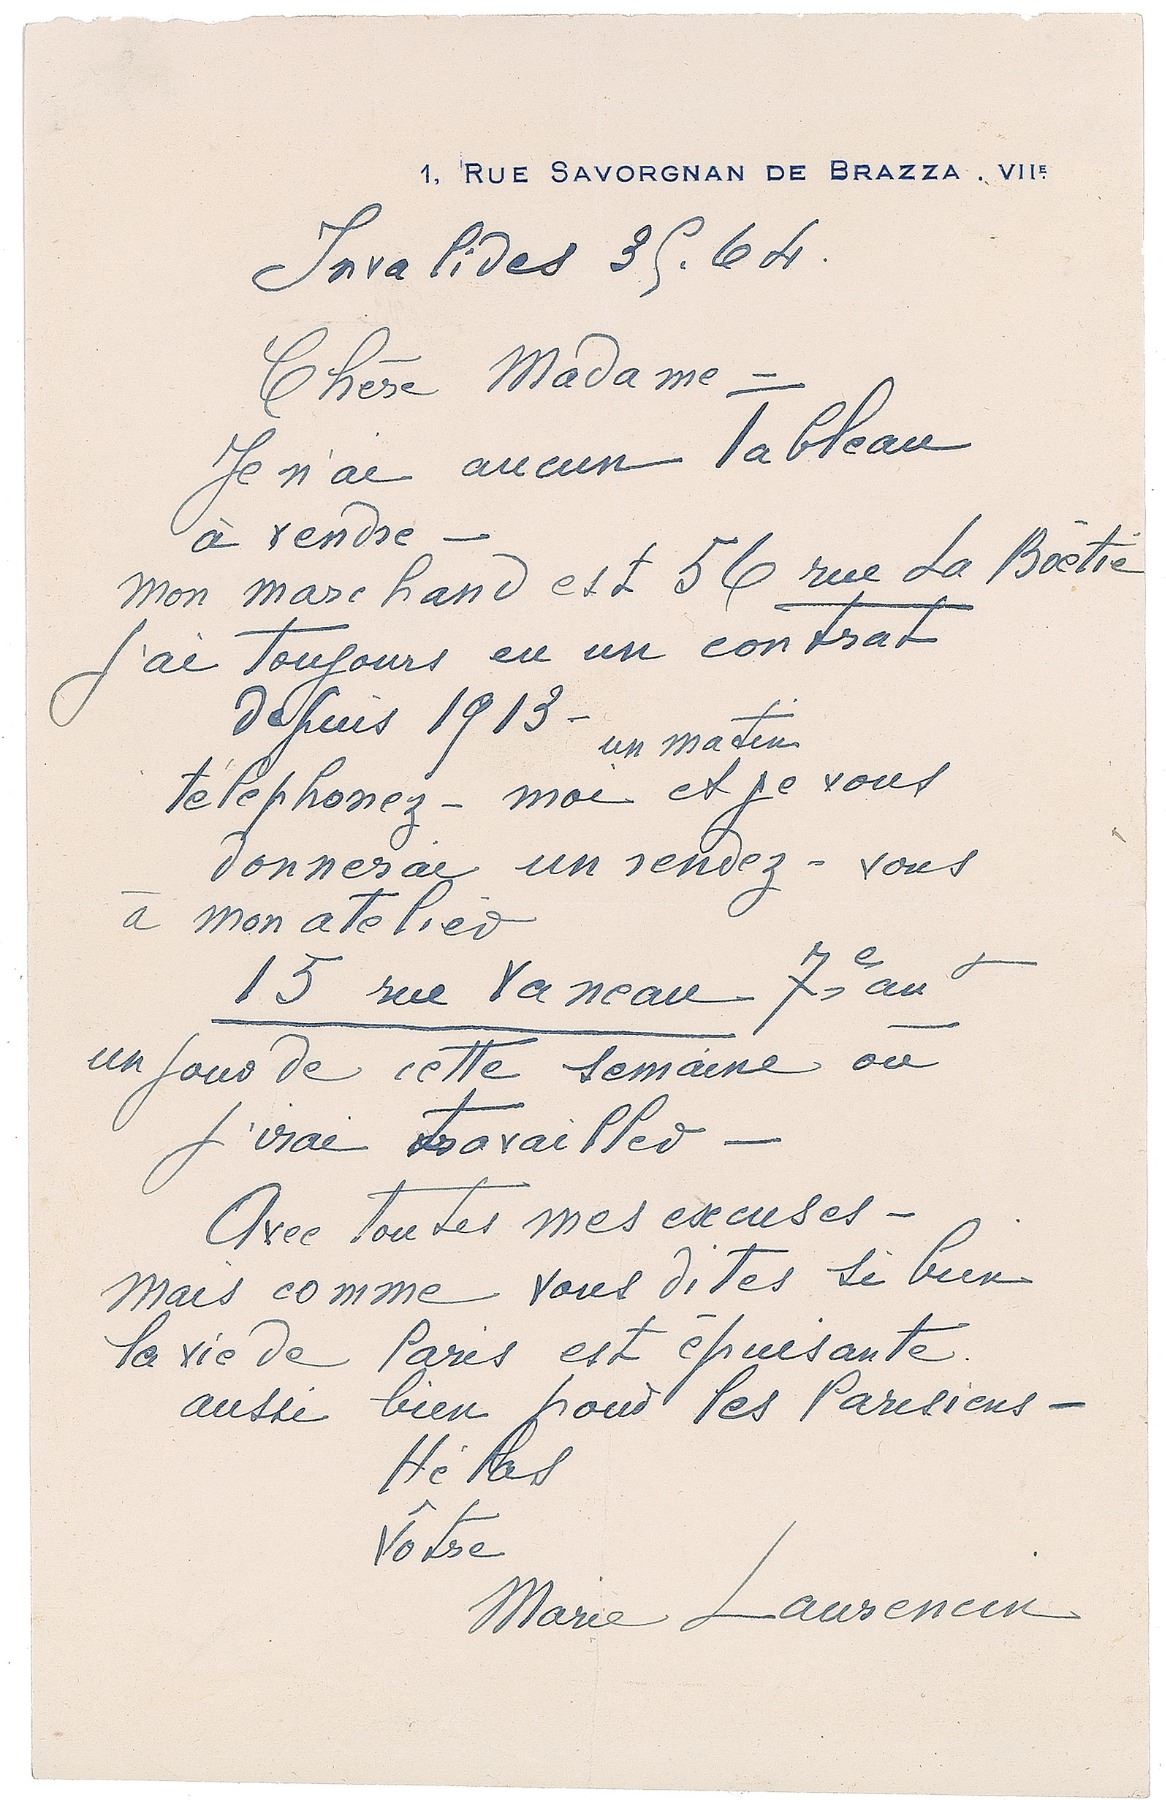 1, RUE SAVORGNAN DE BRAZZA . VIIE.
Invalides 35.64.
Chère Madame =
Je n'ai aucun tableau
à vendre —
mon marchand est 56 rue La Boëtie
j'ai toujours eu un contrat
depuis 1913 -
un matin
téléphonez - moi et je vous
donnerai un rendez - vous
à mon atelier
15 rue Vaneau 7e art
un jour de cette semaine où
j'irai travailler —
Avec toutes mes excuses -
mais comme vous dites si bien
la vie de Paris est épuisante.
aussi bien pour les Parisiens —
Hélas
Vôtre
Marie Laurencin